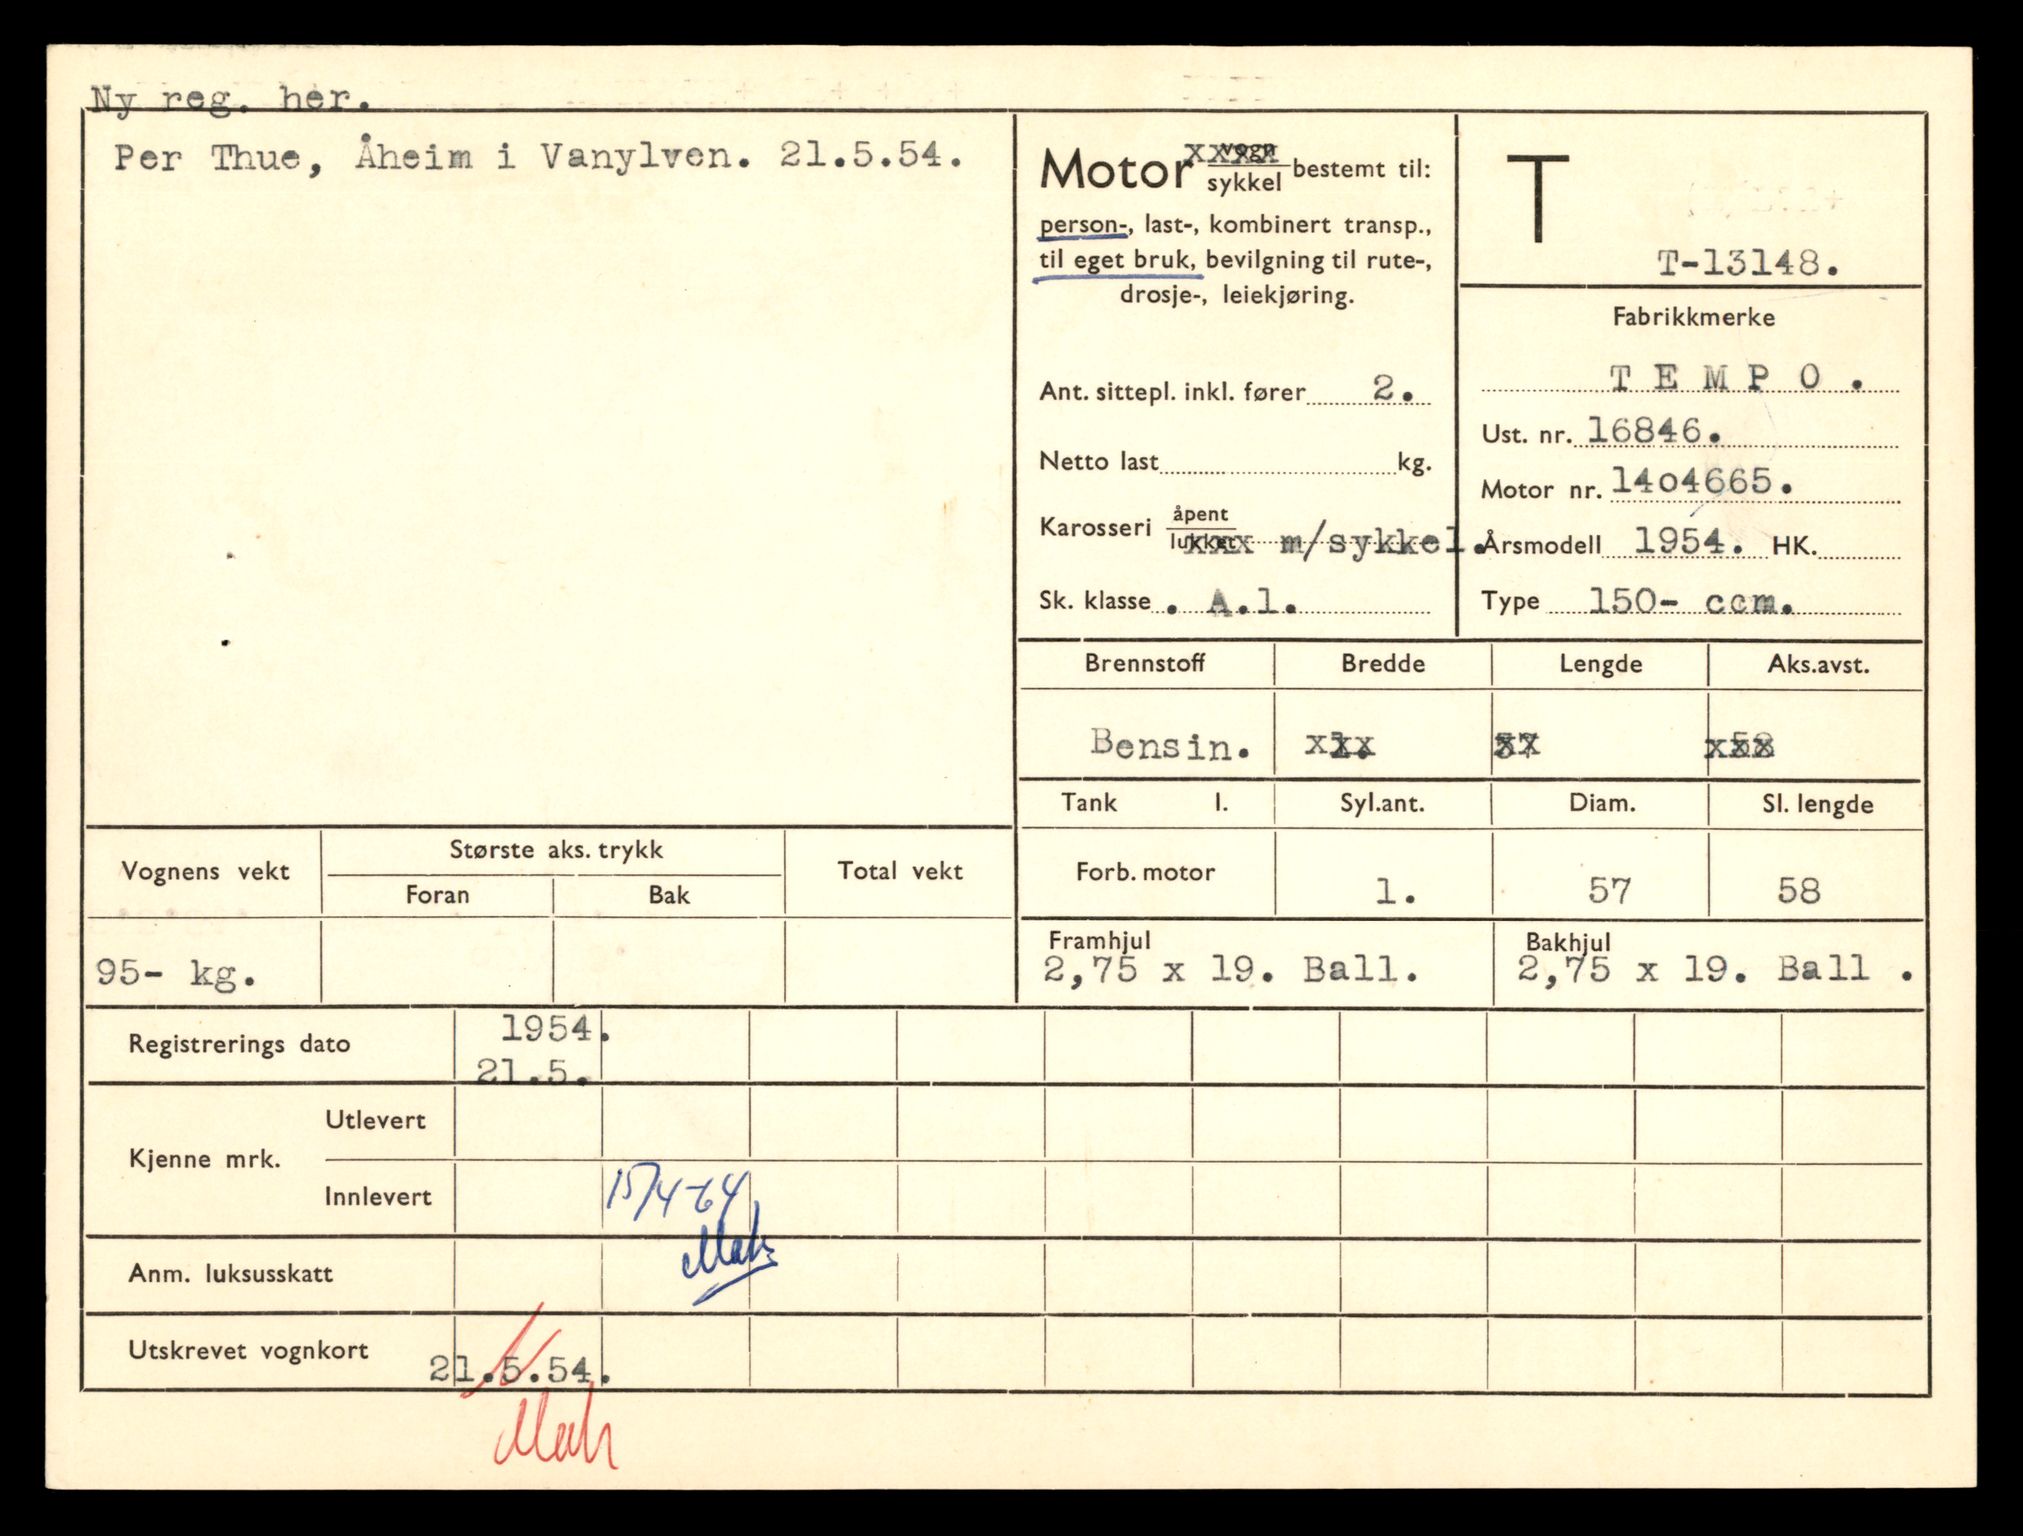 Ny reg. her.
Per Thue, Åheim i Vanylven. 21.5.54.
Motor vogn xxxx
sykkel bestemt til:
person-, last-, kombinert transp.,
til eget bruk, bevilgning til rute-,
drosje-, leiekjøring.
Ant. sittepl. inkl. fører 2.
Netto last kg.
Karosseri åpent
lukket xxx m/sykkel.
Sk. klasse . A.1.
T
T-13148.
Fabrikkmerke
T E M P O .
Ust. nr. 16846.
Motor nr. 14o4665.
Årsmodell 1954. HK.
Type 150- ccm.
Brennstoff Bredde Lengde Aks.avst.
Bensin. xxx xx xxx
Tank l. Syl.ant. Diam. Sl. lengde
Forb. motor 1. 57 58
Framhjul Bakhjul
2,75 x 19. Ball. 2,75 x 19. Ball .
Vognens vekt Største aks. trykk Total vekt
Foran Bak
95- kg.
Registrerings dato 1954.
21.5.
Kjenne mrk. Utlevert
Innlevert 15/4-64
Anm. luksusskatt
Utskrevet vognkort 21.5.54.